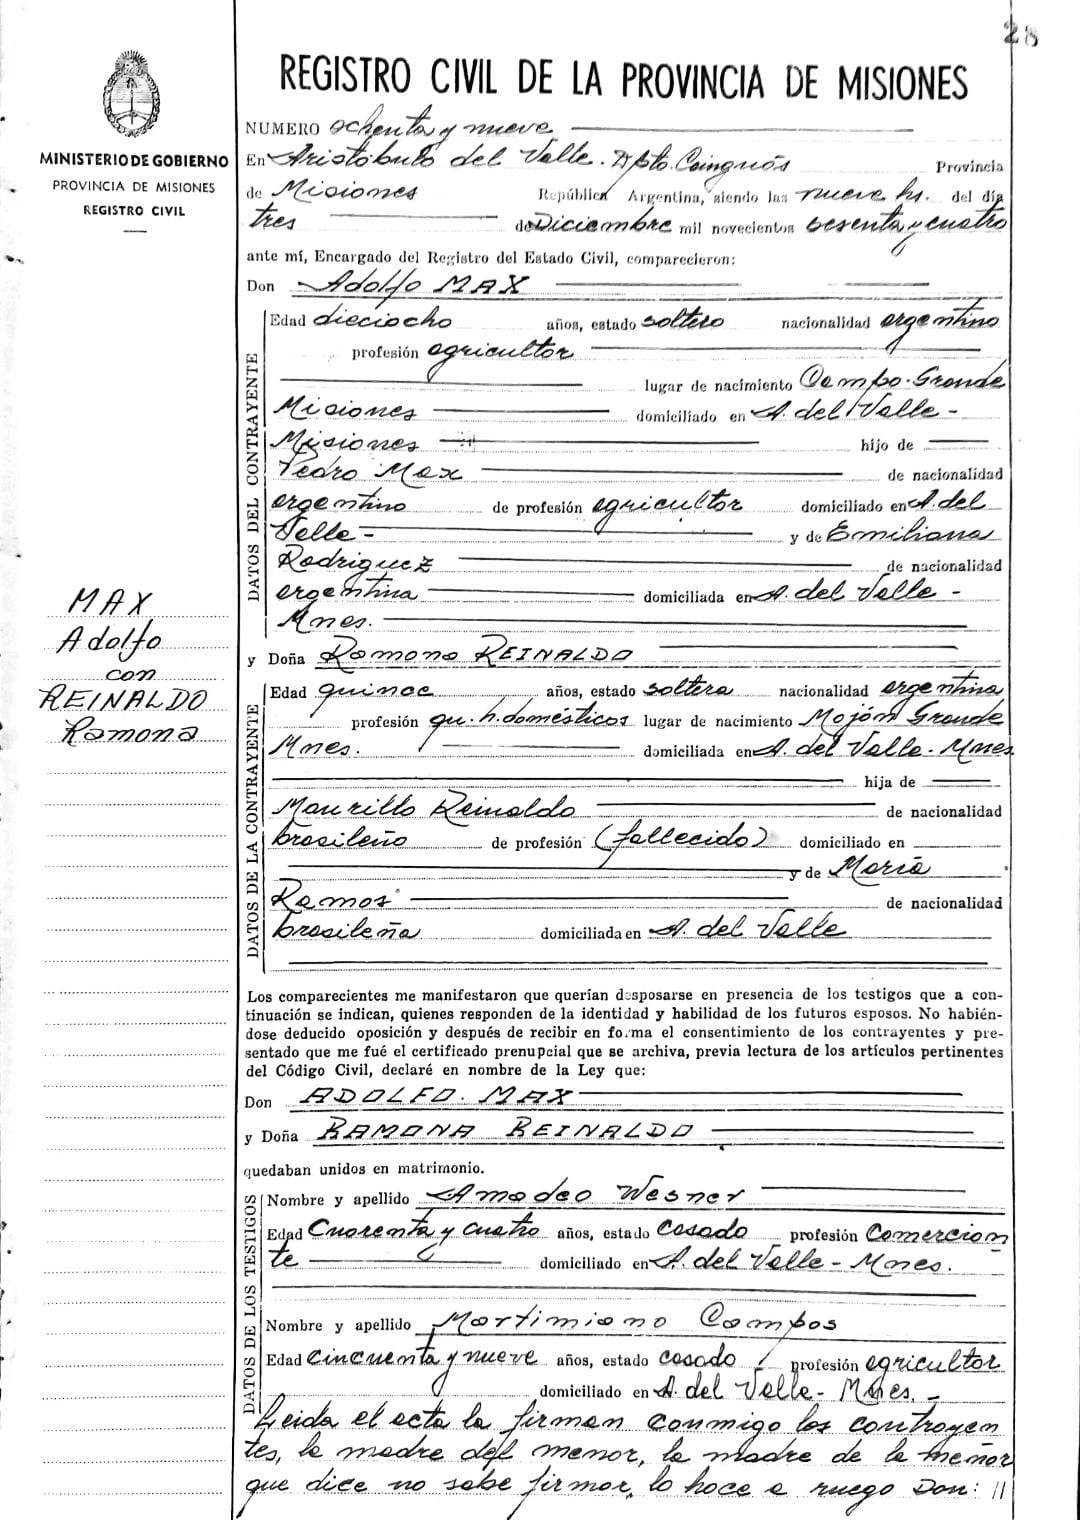 28
REGISTRO CIVIL DE LA PROVINCIA DE MISIONES
MINISTERIO DE GOBIERNO
PROVINCIA DE MISIONES
REGISTRO CIVIL
NUMERO ochenta y nueve
En Aristóbulo del Valle. Dpto. Cainguás Provincia
de Misiones República Argentina, siendo las nueve hs. del día
tres de Diciembre mil novecientos sesenta y cuatro
ante mí, Encargado del Registro del Estado Civil, comparecieron:
Don Adolfo MAX
DATOS DEL CONTRAYENTE
Edad dieciocho años, estado soltero nacionalidad argentino
profesión agricultor
lugar de nacimiento Campo-Grande
Misiones domiciliado en A. del Valle -
Misiones hijo de
Pedro Max de nacionalidad
argentino de profesión agricultor domiciliado en A. del
Valle - y de Emiliana
Rodriguez de nacionalidad
argentina domiciliada en A. del Valle -
Mnes.
MAX
Adolfo
con
REINALDO
Ramona
y Doña Ramona REINALDO
DATOS DE LA CONTRAYENTE
Edad quince años, estado soltera nacionalidad argentina
profesión qu. h. domésticos lugar de nacimiento Mojón Grande
Mnes. domiciliada en A. del Valle - Mnes
hija de
Maurillo Reinaldo de nacionalidad
brasileño de profesión (fallecido) domiciliado en
y de María
Ramos de nacionalidad
brasileña domiciliada en A. del Valle
Los comparecientes me manifestaron que querían desposarse en presencia de los testigos que a con-
tinuación se indican, quienes responden de la identidad y habilidad de los futuros esposos. No habién-
dose deducido oposición y después de recibir en forma el consentimiento de los contrayentes y pre-
sentado que me fué el certificado prenupcial que se archiva, previa lectura de los artículos pertinentes
del Código Civil, declaré en nombre de la Ley que:
Don ADOLFO. MAX
y Doña RAMONA REINALDO
quedaban unidos en matrimonio.
DATOS DE LOS TESTIGOS
Nombre y apellido Amadeo Wesner
Edad Cuarenta y cuatro años, estado casado profesión Comercian
te domiciliado en A. del Valle - Mnes.
Nombre y apellido Martimiano Campos
Edad Cincuenta y nueve años, estado casado profesión agricultor
domiciliado en A. del Valle - Mnes. -
Leida el acta la firman conmigo los contrayen
tes, la madre del menor, la madre de la menor
que dice no sabe firmar, lo hace a ruego Don: //